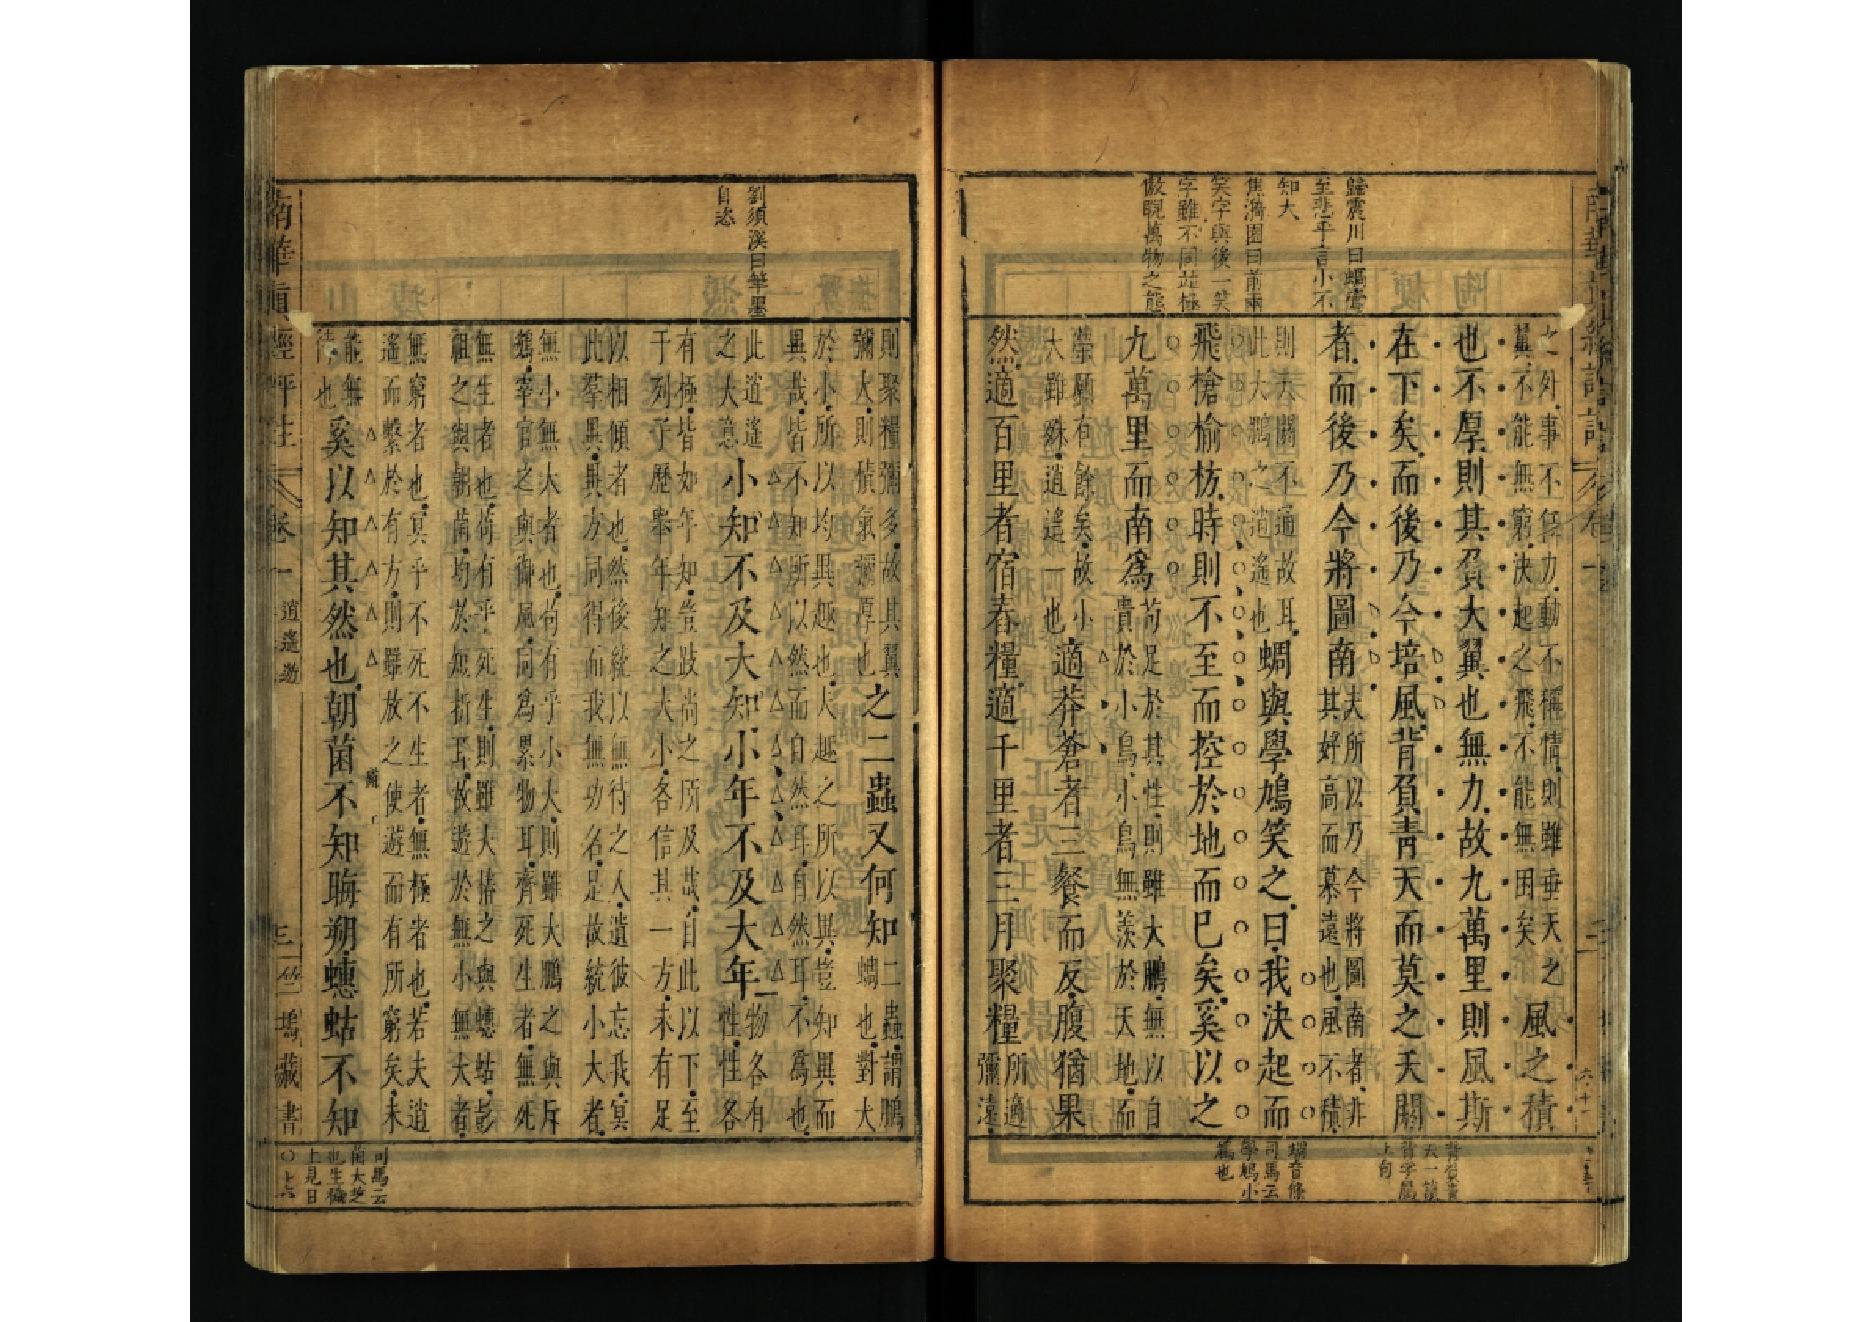 歸震川曰蜩鷽
至悲乎言小不
知大
焦漪園曰前兩
笑字與後一笑
字雖不同並極
傲睨萬物之態
之外事不任力動不稱情則雖垂天之
翼不能無窮決起之飛不能無困矣
風之積
也不厚則其負大翼也無力故九萬里則風斯
在下矣而後乃今培風背負青天而莫之夭閼
者而後乃今將圖南
夫所以乃今將圖南者非
其好高而慕遠也風不積
則夭閼不通故耳
此大鵬之逍遙也
蜩與學鳩笑之曰我決起而
飛槍榆枋時則不至而控於地而已矣奚以之
九萬里而南為
苟足於其性則雖大鵬無以自
貴於小鳥小鳥無羨於天地而
榮願有餘矣故小
大雖殊逍遙一也
適莽蒼者三餐而反腹猶果
然適百里者宿舂糧適千里者三月聚糧
所適
彌遠
背負青
天一讀
背字屬
上句
蜩音條
司馬云
學鳩小
鳩也
劉須溪曰筆墨
自恣
則聚糧彌多故其翼
彌大則積氣彌厚也
之二蟲又何知
二蟲謂鵬
蜩也對大
於小所以均異趣也夫趣之所以異豈知異而
異哉皆不知所以然而自然耳自然耳不為也
此逍遙
之大意
小知不及大知小年不及大年
物各有
性性各
有極皆如年知豈跂尚之所及哉自此以下至
于列子歷舉年知之大小各信其一方未有足
以相傾者也然後統以無待之人遺彼忘我冥
此羣異異方同得而我無功名是故統小大者
無小無大者也苟有乎小大則雖大鵬之與斥
鷃宰官之與御風同為累物耳齊死生者無死
無生者也苟有乎死生則雖大椿之與蟪蛄彭
祖之與朝菌均於短折耳故遊於無小無大者
無窮者也冥乎不死不生者無極者也若夫逍
遙而繫於有方則雖放之使遊而有所窮矣未
能無
待也
奚以知其然也朝菌不知晦朔蟪蛄不知
司馬云
菌大芝
也生糞
上見日
南華真經評註 卷一 逍遙遊 三 竺塢藏書